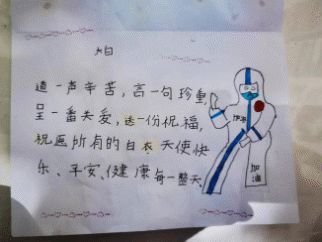 大白
道一声辛苦,言一句珍重,
呈一番关爱,送一份祝福,
祝愿所有的白衣天使快
乐、平安、健康每一整天
加油